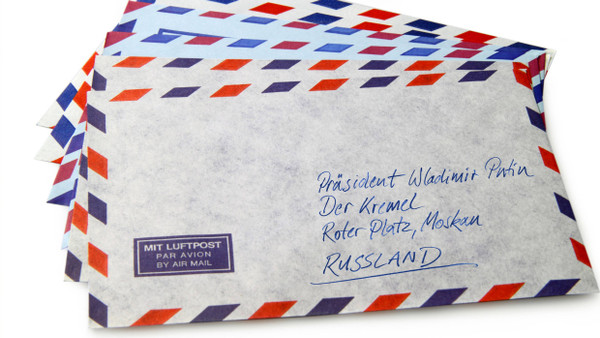 Präsident Wladimir Putin
Der Kremel
Roter Platz, Moskau
RUSSLAND
MIT LUFTPOST
PAR AVION
BY AIR MAIL